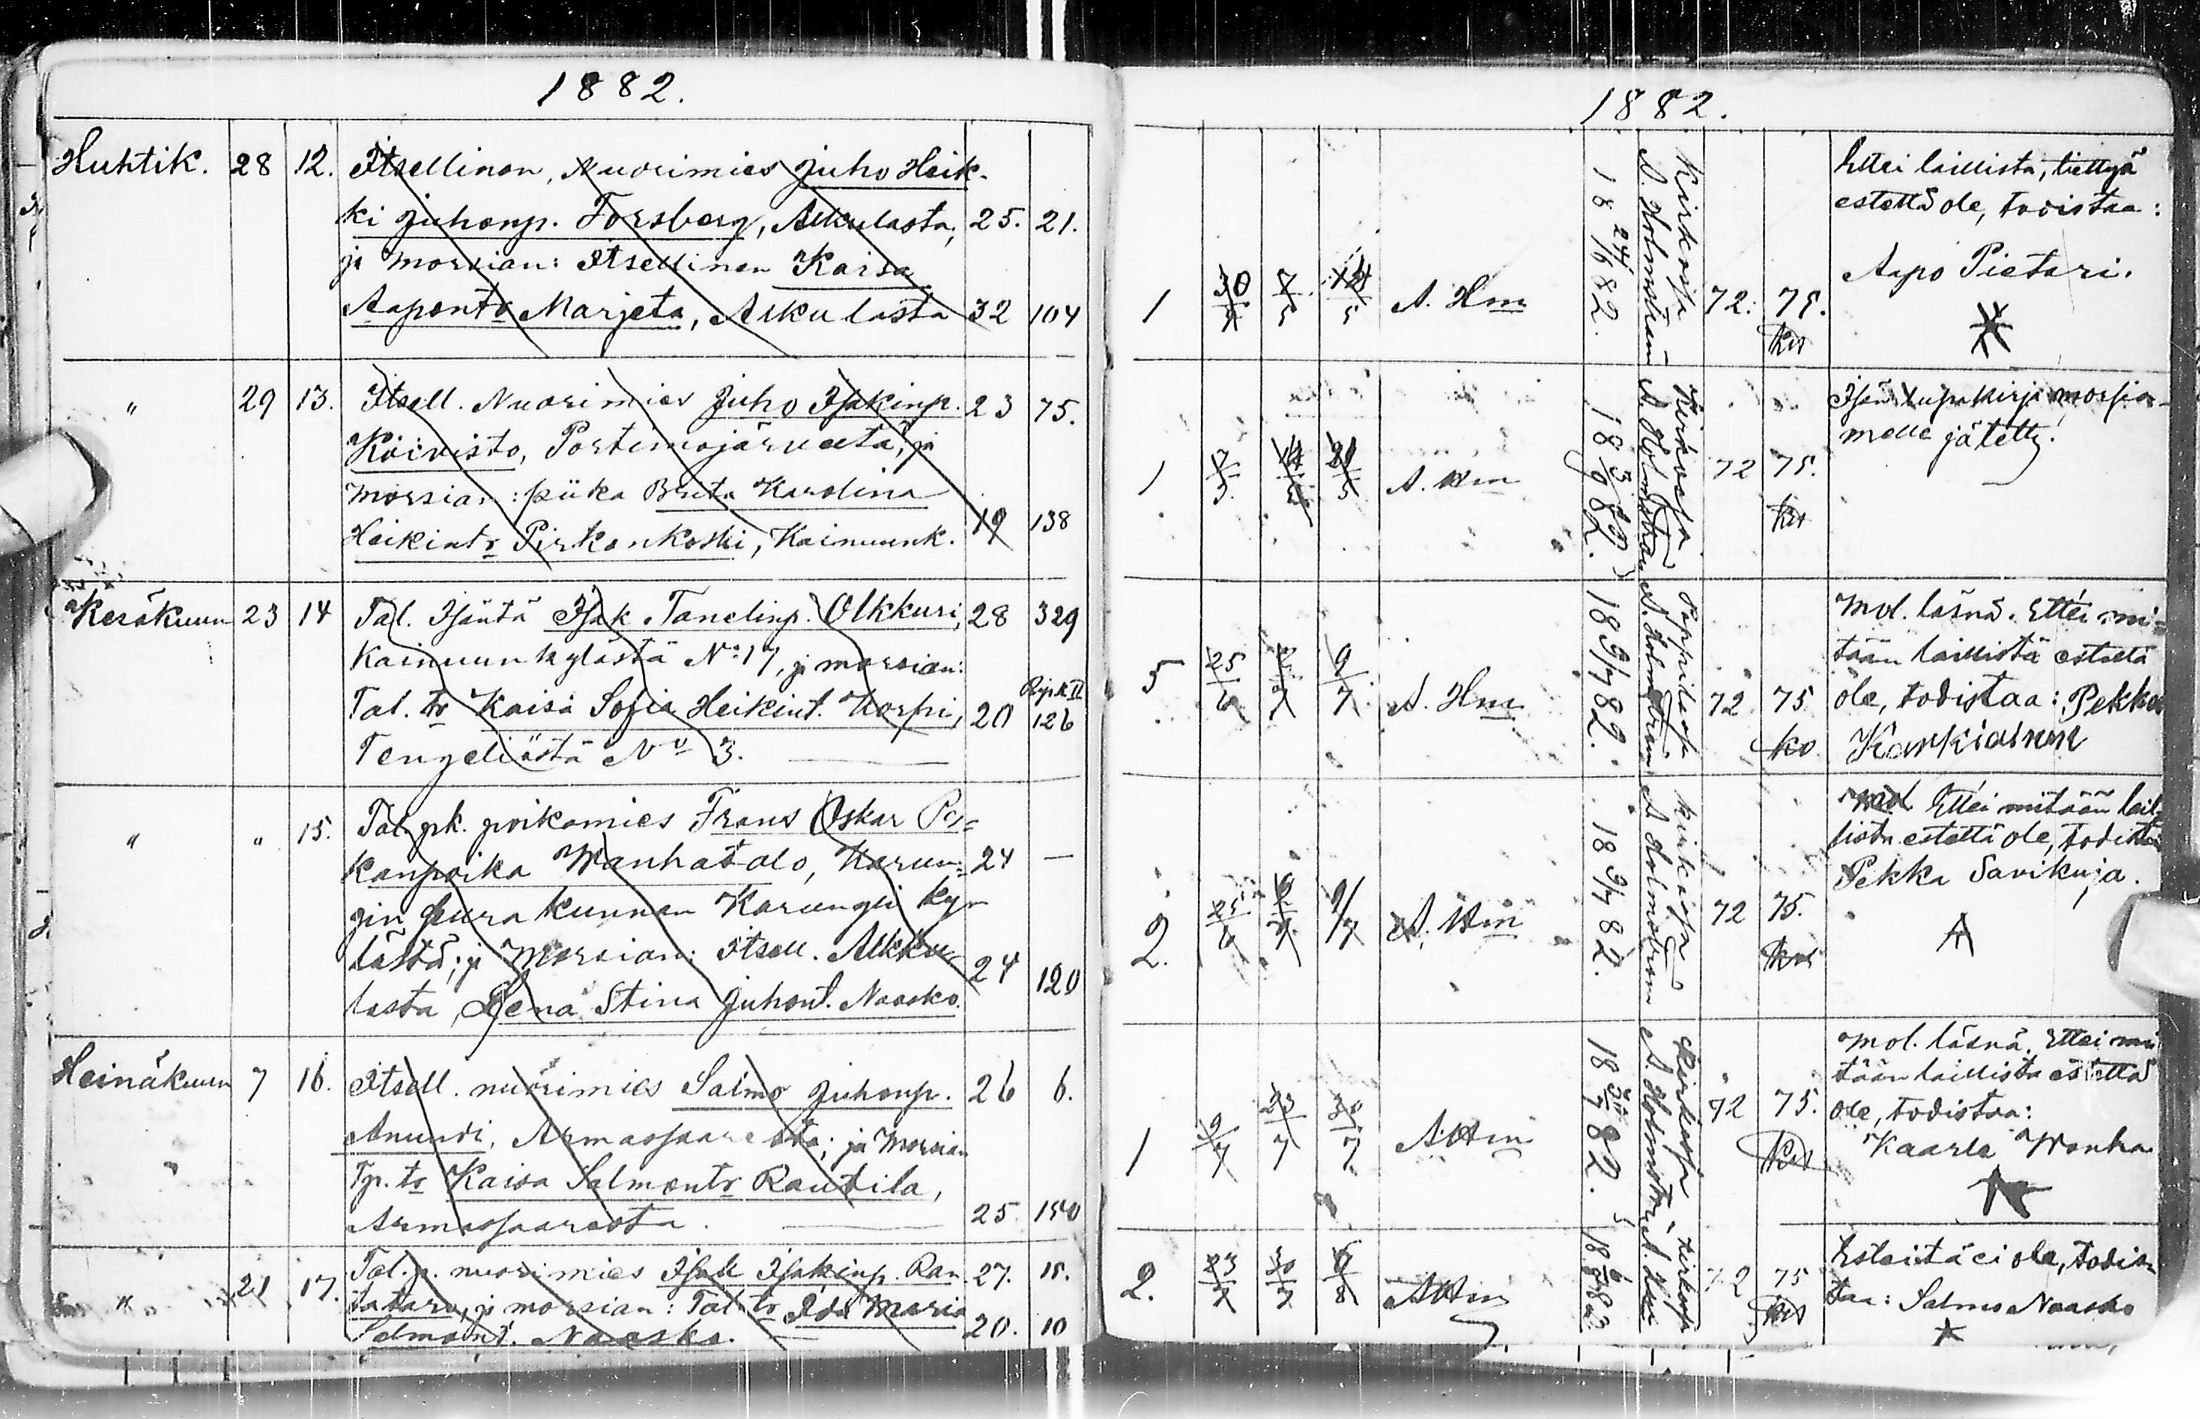 1882.
Huhtik. 28 12. Itsellinen, Nuorimies Juho Heik-
ki Juhonp. Forsberg, Alkulasta, 25. 21.
ja morsian: Itsellinen Kaisa
Aaponto Marjeta, Alkulasta 32 104
" 29 13. Itsell. Nuorimies Juho Isakinp. 23 75.
Koivisto, Portimojärveltä, ja
morsian: piika Brita Karolina
Heikintr Pirkonkoski, Kainuunk. 19 138
Kesäkuun 23 14 Tal. Isäntä Isak Tanelinp. Olkkuri, 28 329
Kainuunkylästä No 17, ja morsian:
Tal. tr Kaisa Sofia Heikint. Korpi, 20 Ripk. II 126
Tengeliöstä No 3.
" " 15. Tal. pk. poikamies Frans Oskar Pe-
kanpoika Wanhatalo, Karun- 24 —
gin seurakunnan Karungin ky-
lästä; ja Morsian: Itsell. Alkku- 24 120
lasta, Lena Stina Juhont. Naasko.
Heinäkuun 7 16. Itsell. nuorimies Salmo Juhonp. 26 6.
Anundi, Armassaaresta; ja Morsian
Tp. tr Kaisa Salmontr Rautila,
Armassaaresta. 25. 150
" 21 17. Tal. p. nuorimies Isak Isakinp. Ran- 27. 15.
tatara, ja morsian: Tal. tr Ida Maria
Salmont. Naasko. 20. 10
1882.
Ettei laillista, tiettyä
estettä ole, todistaa:
Aapo Pietari.
1 30/4 7/5 14/5 A. Hm 18 24/6 82. Kirkossa A. Holmström 72. 75.
Isän lupakirja morsia-
melle jätetty.
1 7/5 14/5 21/5 A. Hm 18 3/9 82. Kirkossa A. Holmström 72 75.
Mol. läsnä. Ettei mi-
tään laillista estettä
ole, todistaa: Pekka
Karkiainen
5 25/6 2/7 9/7 A. Hm 18 9/7 82. Pappilassa A. Holmström 72 75
Ettei mitään lail-
lista estettä ole, todistaa
Pekka Savikuja.
2. 25/6 2/7 9/7 A. Hm 18 9/7 82. kirkossa A Holmström 72 75.
Mol. läsnä. Ettei mi
tään laillista estettä
ole, todistaa:
Kaarle Wanha
1 9/7 23/7 30/7 A Hm 18 30/7 82. Kirkossa A. Holmström 72 75.
Esteitä ei ole, todis-
taa: Salmo Naasko
2. 23/7 30/7 6/8 A Hm 18 6/8 82. kirkossa 72 75